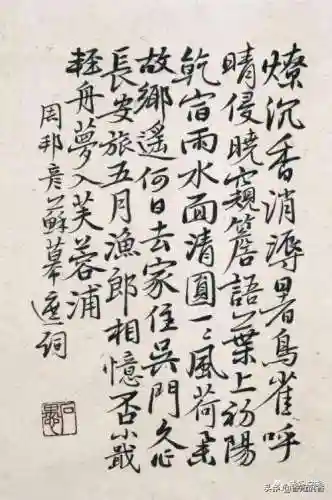 燎沉香消溽暑鳥雀呼
晴侵曉窺簷語葉上初陽
乾宿雨水面清圓一〻風荷舉
故鄉遙何日去家住吳門久作
長安旅五月漁郎相憶否小楫
輕舟夢入芙蓉浦
周邦彥蘇幕遮詞